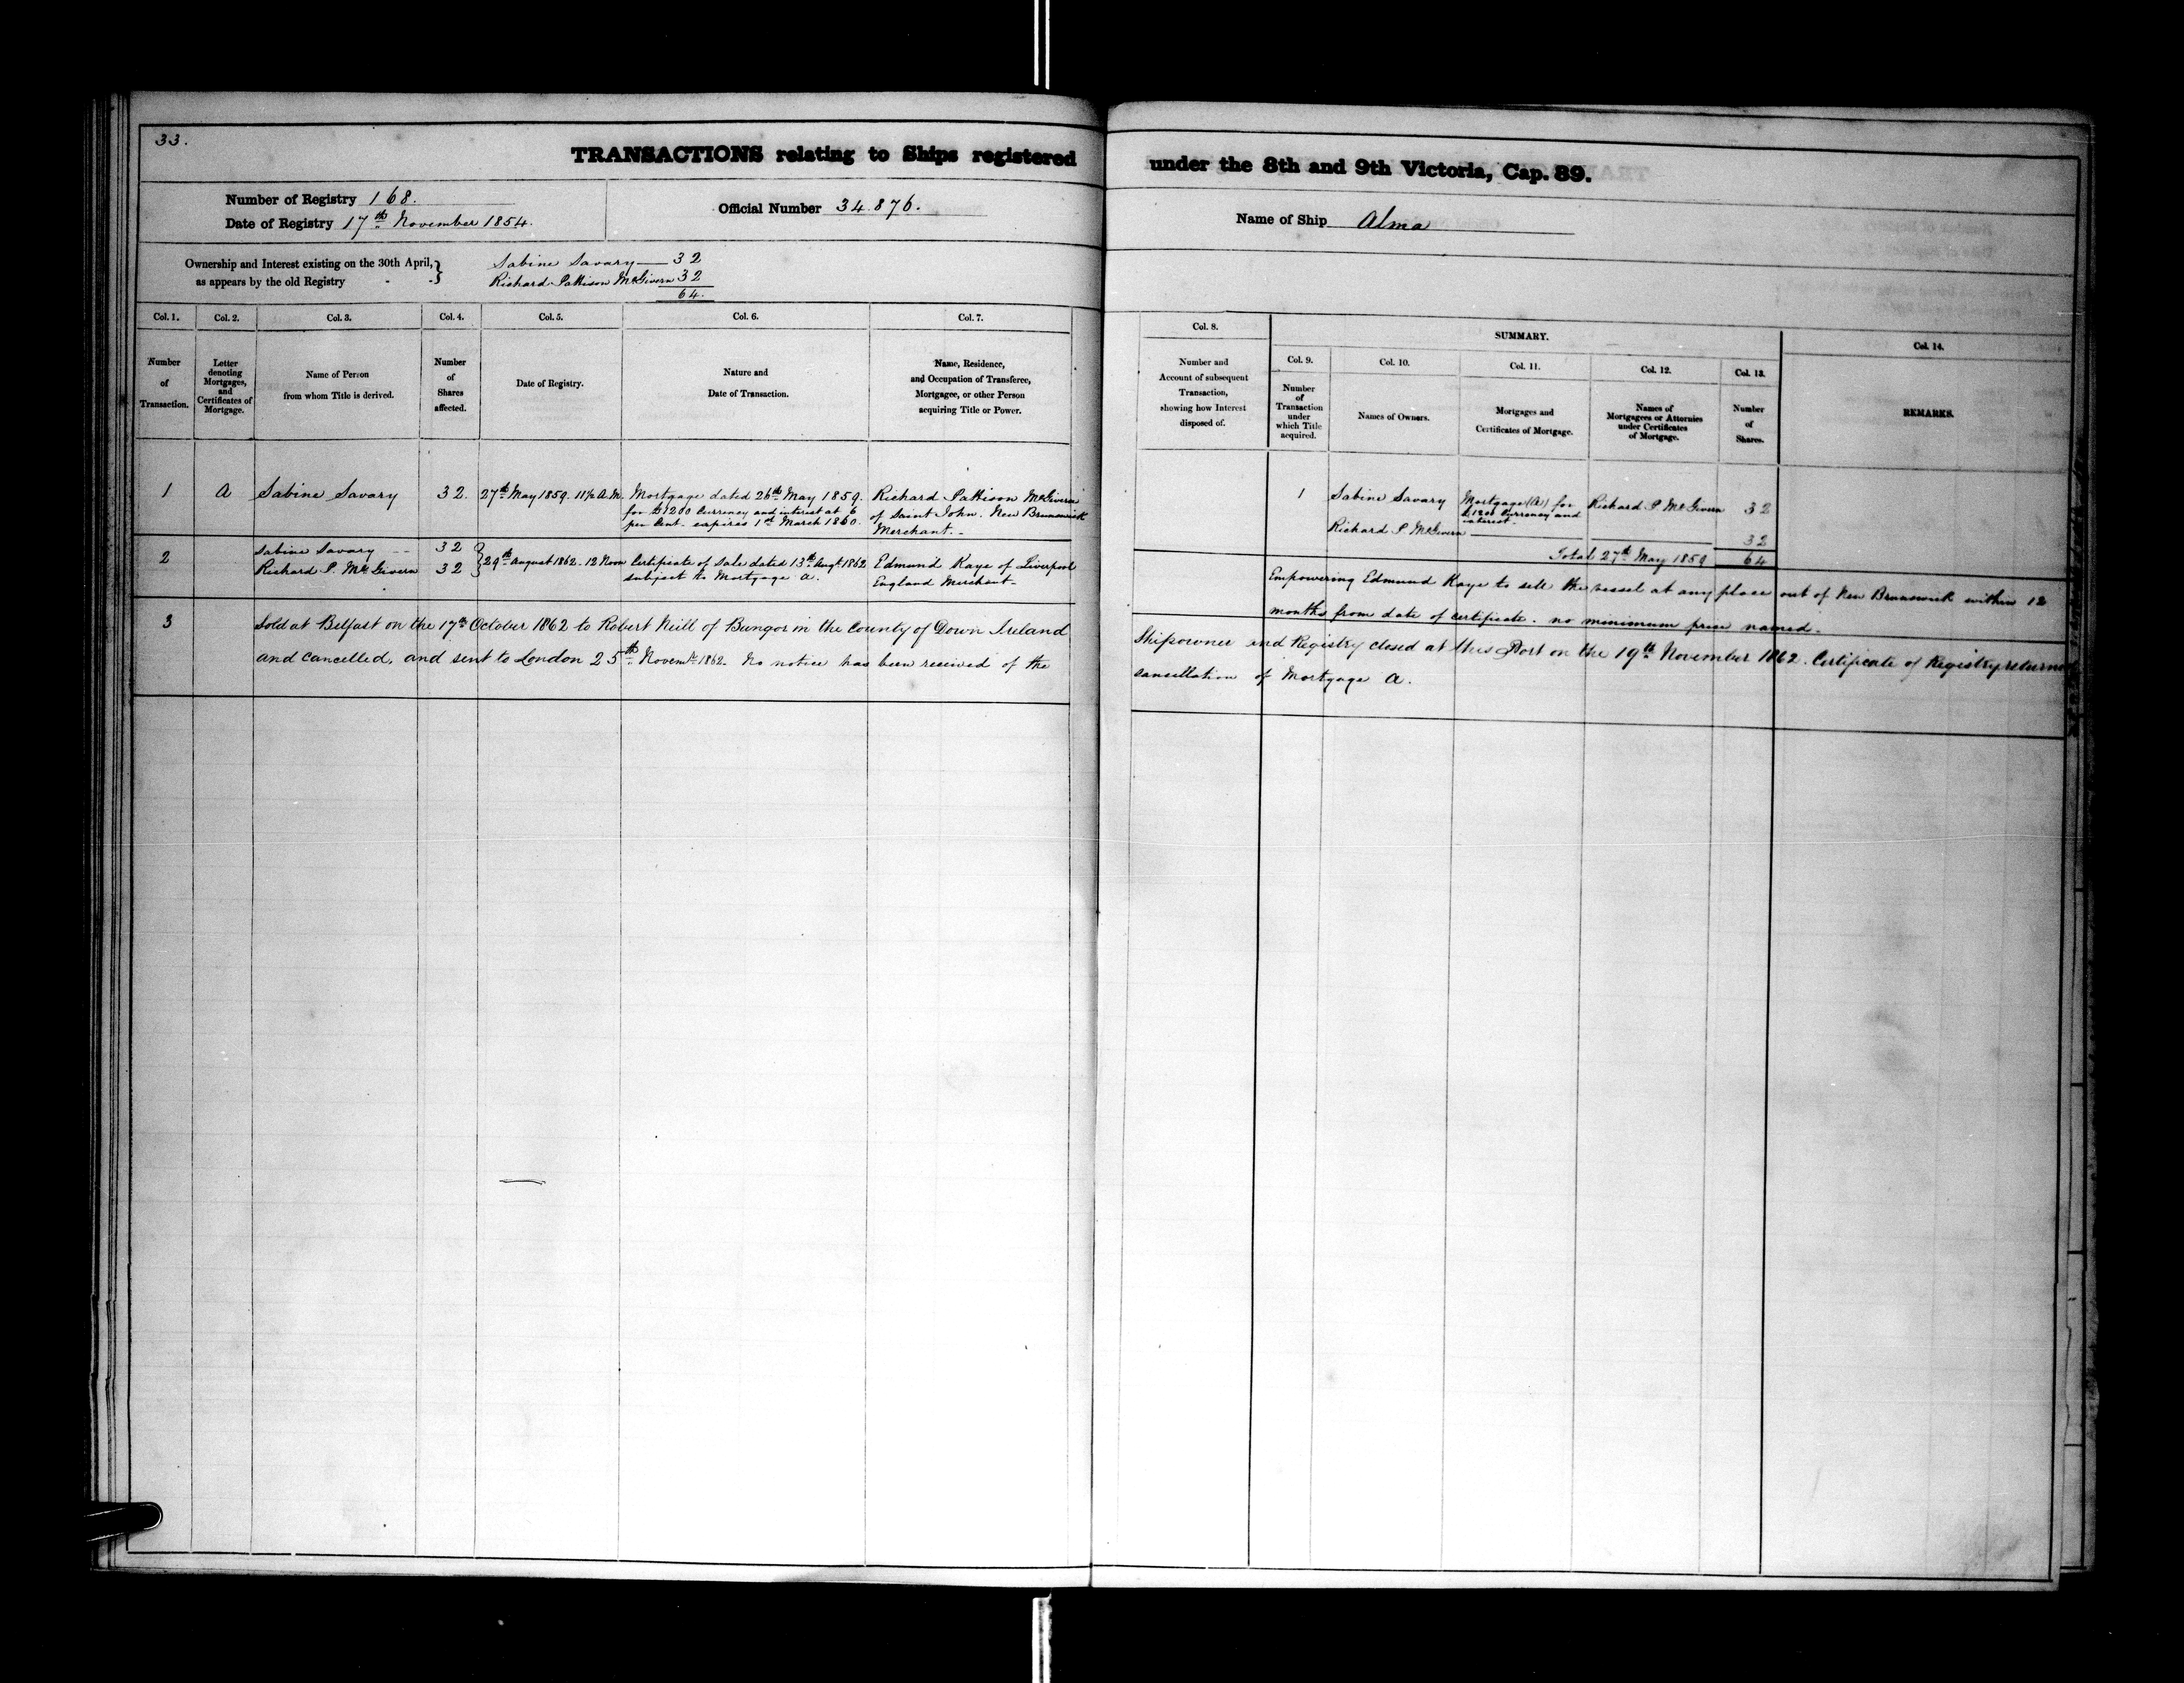 33.
TRANSACTIONS relating to Ships registered under the 8th and 9th Victoria, Cap. 89.
Number of Registry 168.
Date of Registry 17th November 1854.
Official Number 34.876.
Name of Ship Alma
Ownership and Interest existing on the 30th April, } Sabine Savary — 32
as appears by the old Registry - - Richard Pattison McGivern 32
64.
Col. 1. Col. 2. Col. 3. Col. 4. Col. 5. Col. 6. Col. 7.
Number of Transaction.
Letter denoting Mortgages, and Certificates of Mortgage.
Name of Person from whom Title is derived.
Number of Shares affected.
Date of Registry.
Nature and Date of Transaction.
Name, Residence, and Occupation of Transferee, Mortgagee, or other Person acquiring Title or Power.
Col. 8.
Number and Account of subsequent Transaction, showing how Interest disposed of.
SUMMARY.
Col. 9. Col. 10. Col. 11. Col. 12. Col. 13. Col. 14.
Number of Transaction under which Title acquired.
Names of Owners.
Mortgages and Certificates of Mortgage.
Names of Mortgagees or Attornies under Certificates of Mortgage.
Number of Shares.
REMARKS.
1 A Sabine Savary 32. 27th May 1859. 11½ A.M. Mortgage dated 26th May 1859. Richard Pattison McGivern
for £1200 Currency and interest at 6 of Saint John. New Brunswick
per Cent. expires 1st March 1860. Merchant.-
1 Sabine Savary Mortgage (A) for Richard P McGivern 32
£1200 Currency and
interest.
Richard P McGivern 32
Total 27th May 1859 64
2 Sabine Savary -- 32 } 29th August 1862. 12 Noon Certificate of Sale dated 13th Augt 1862 Edmund Kaye of Liverpool
Richard P. McGivern 32 subject to Mortgage A. England Merchant-
Empowering Edmund Kaye to sell the vessel at any place out of New Brunswick within 12
months from date of certificate. no minimum price named.
3 Sold at Belfast on the 17th October 1862 to Robert Neill of Bangor in the County of Down Ireland Shipowner and Registry closed at this Port on the 19th November 1862. Certificate of Registry returned
and cancelled, and sent to London 25th Novemr 1862. No notice has been received of the cancellation of Mortgage A.